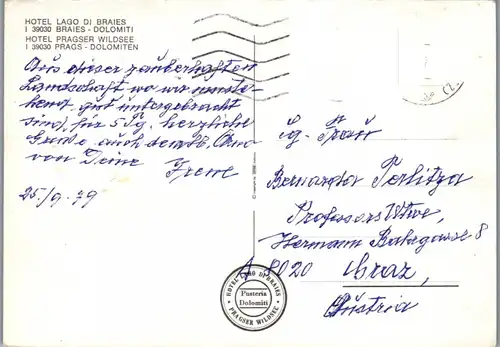 HOTEL LAGO DI BRAIES
I 39030 BRAIES - DOLOMITI
HOTEL PRAGSER WILDSEE
I 39030 PRAGS - DOLOMITEN
Aus dieser zauberhaften
Landschaft wo wir umste-
hend gut untergebracht
sind, für 5 Tg. herzliche
Grüße auch demlb.
von Deine
Irene
25./9. 79
Frau
Bernarda Perlitza
Professors Wtwe,
Hermann Bahrgasse 8
A 8020 Graz,
Austria
HOTEL LAGO DI BRAIES
Pusteria
Dolomiti
PRAGSER WILDSEE